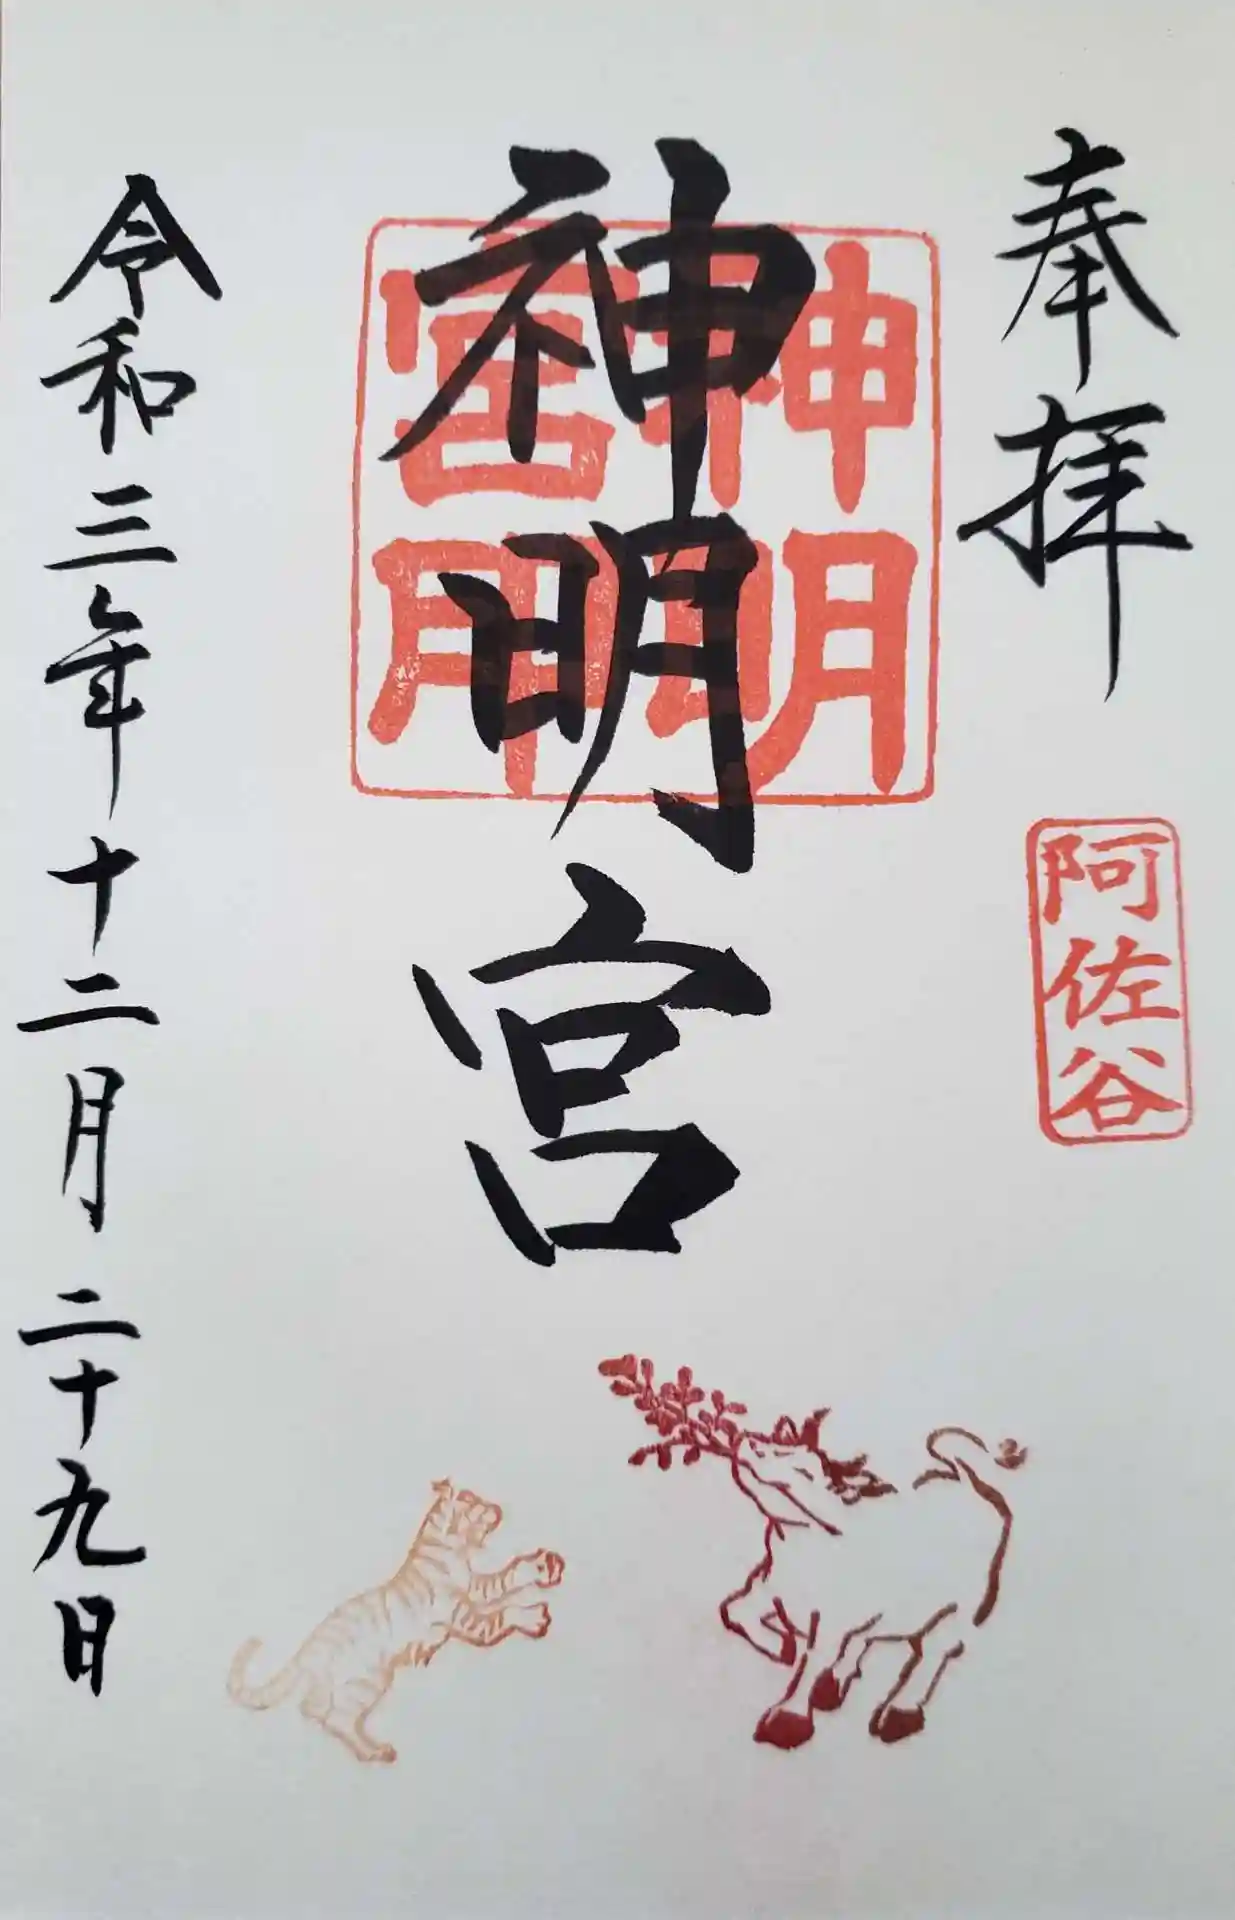 奉拝
阿佐谷
神明宮
神明宮印
令和三年十二月二十九日